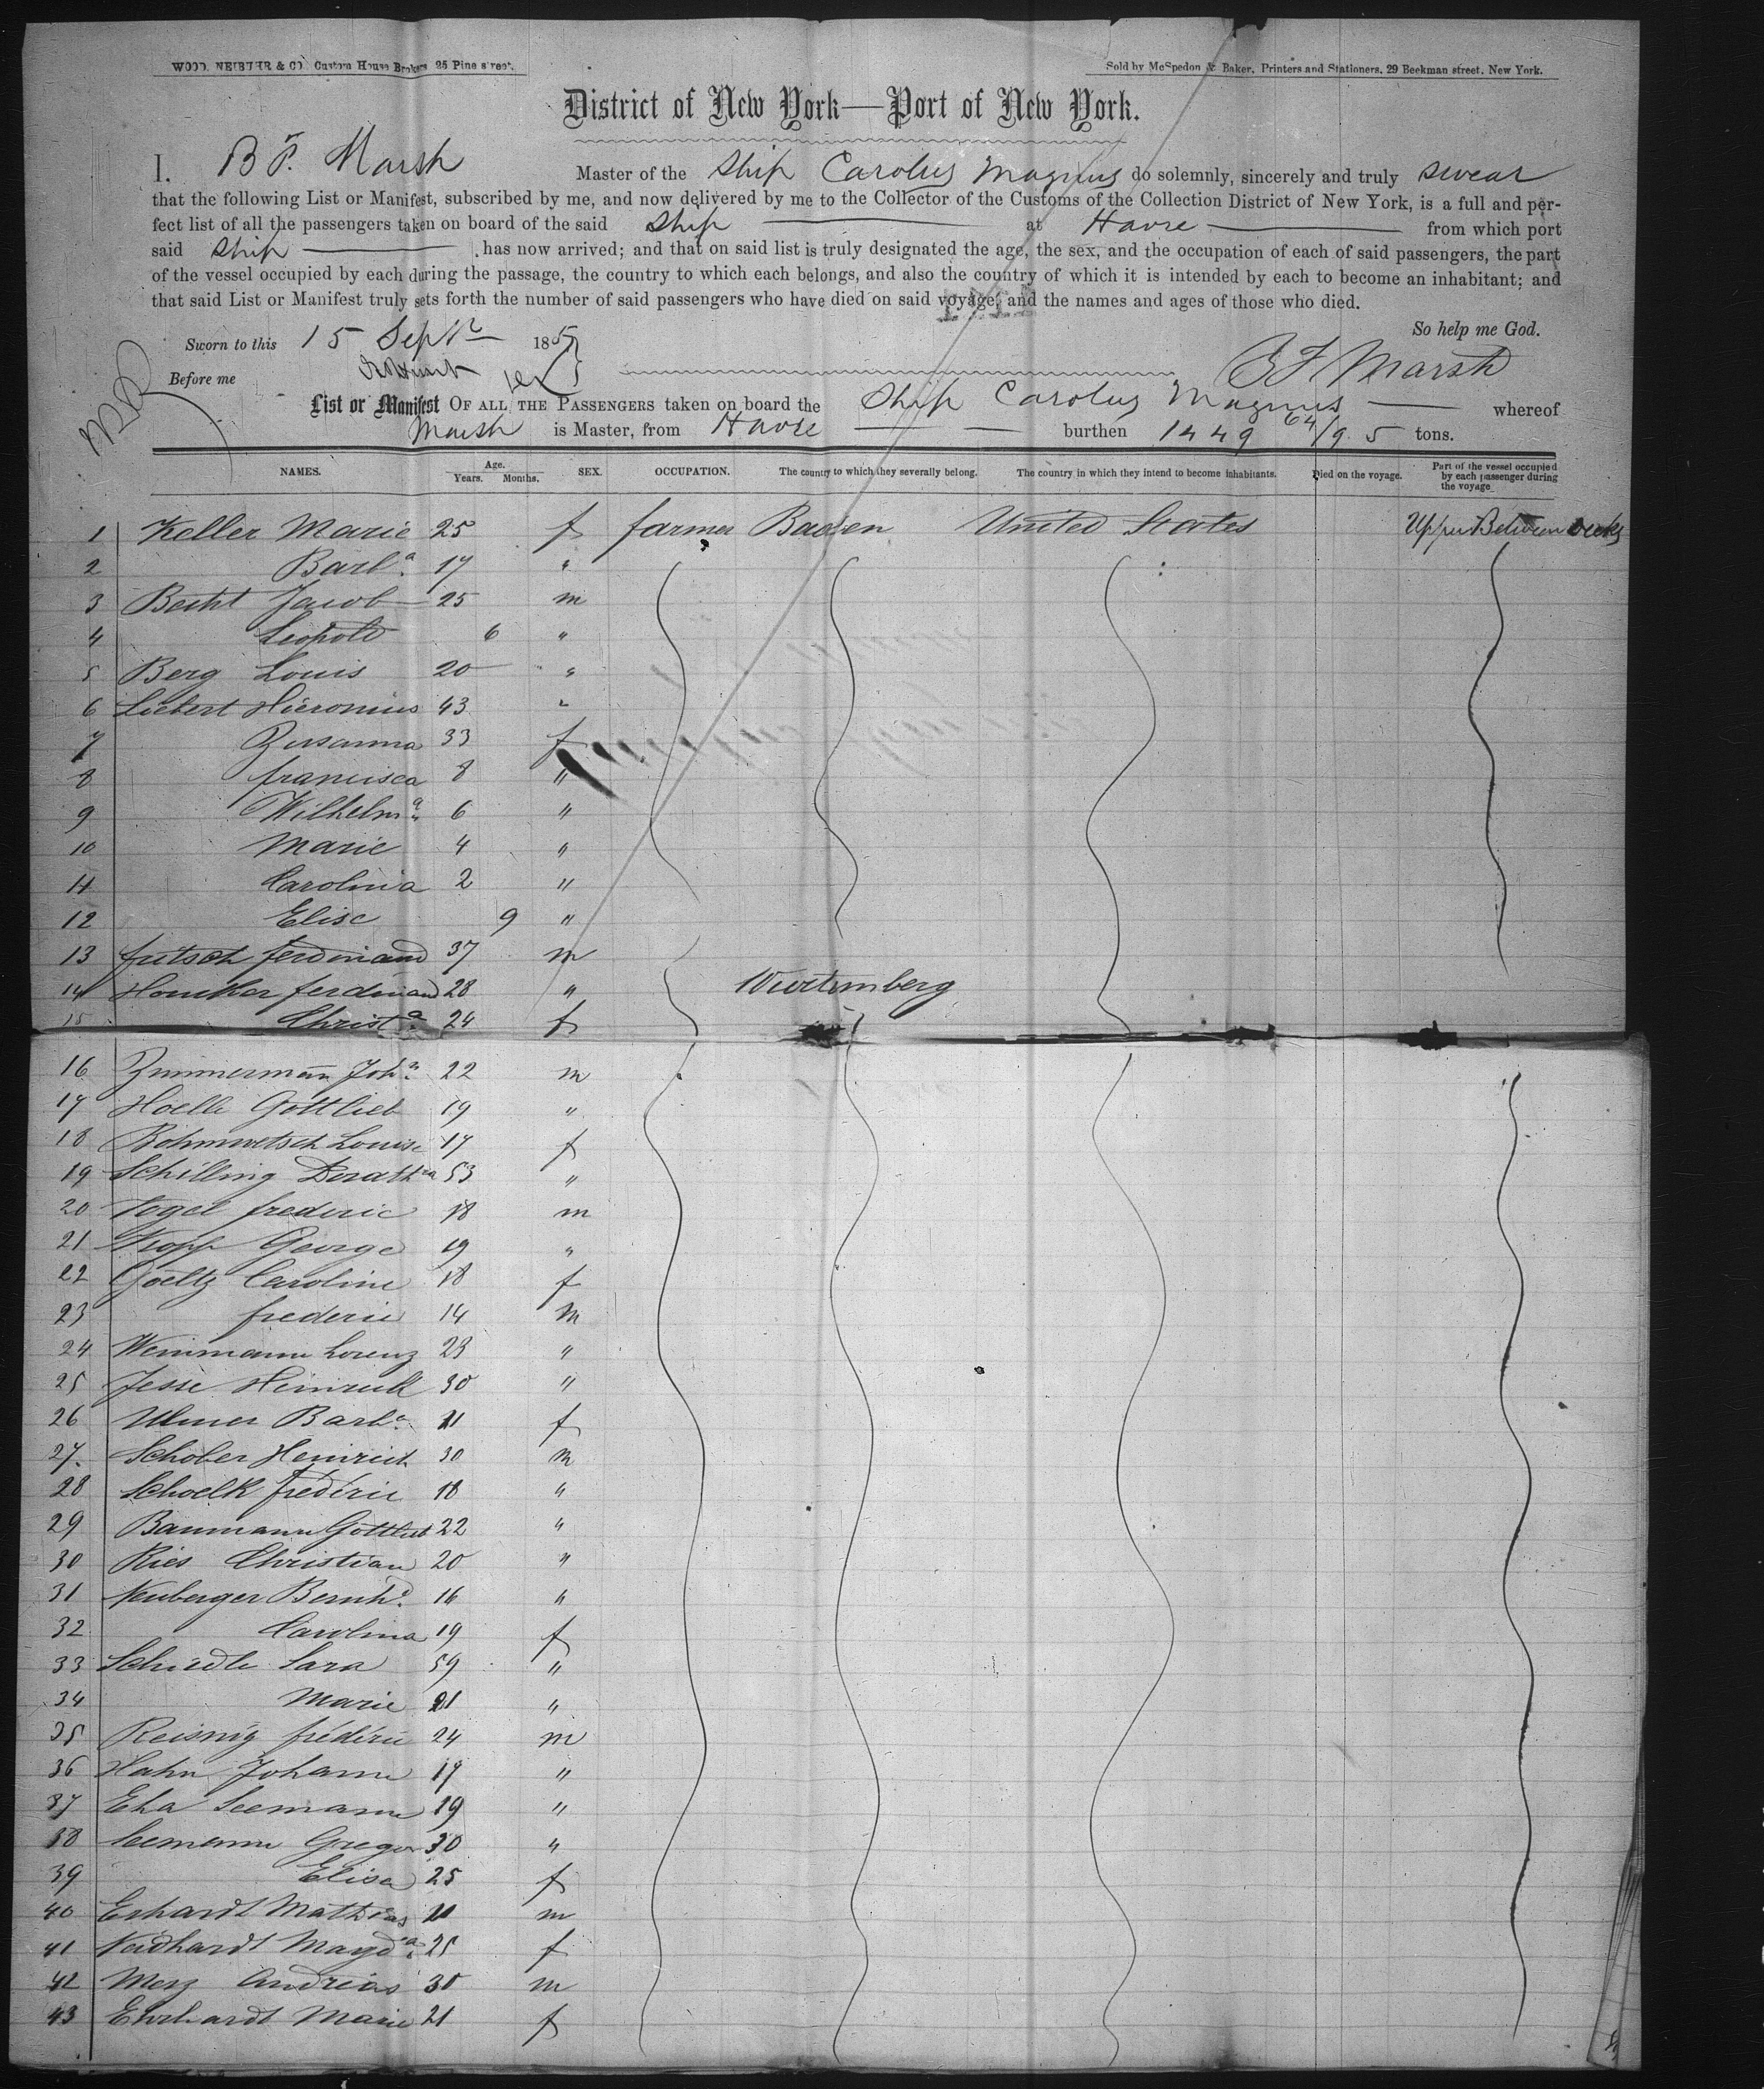 WOOD, NEIBUHR & CO. Custom House Brokers 25 Pine street.
Sold by McSpedon & Baker, Printers and Stationers, 29 Beekman street, New York.
District of New York—Port of New York.
I, B F. Marsh Master of the Ship Carolus Magnus do solemnly, sincerely and truly swear
that the following List or Manifest, subscribed by me, and now delivered by me to the Collector of the Customs of the Collection District of New York, is a full and per-
fect list of all the passengers taken on board of the said Ship at Havre from which port
said Ship has now arrived; and that on said list is truly designated the age, the sex, and the occupation of each of said passengers, the part
of the vessel occupied by each during the passage, the country to which each belongs, and also the country of which it is intended by each to become an inhabitant; and
that said List or Manifest truly sets forth the number of said passengers who have died on said voyage, and the names and ages of those who died.
So help me God.
Sworn to this 15 Sept 185
B F Marsh
Before me
List or Manifest OF ALL THE PASSENGERS taken on board the Ship Carolus Magnus whereof
Marsh is Master, from Havre burthen 1449 64/95 tons.
NAMES. Age. Years. Months. SEX. OCCUPATION. The country to which they severally belong. The country in which they intend to become inhabitants. Died on the voyage. Part of the vessel occupied by each passenger during the voyage
1 Keller Marie 25 f farmer Baden United States Upper Between Decks
2 Barba. 17 "
3 Becht Jacob 25 m
4 Leopold 6 "
5 Berg Louis 20 "
6 Liebert Hieronius 43 "
7 Zusanna 33 f
8 francisca 8 "
9 Wilhelma. 6 "
10 Marie 4 "
11 Carolina 2 "
12 Elise 9 "
13 fritsch ferdinand 37 m
14 Houcker ferdinand 28 " Wurtemberg
15 Christa. 24 f
16 Zimmermann Joha. 22 m
17 Hoelle Gottlieb 19 "
18 Bohmwetsch Louise 17 f
19 Schilling Dorathea 53 "
20 Vogel frederic 18 m
21 Kopp George 19 "
22 Goeltz Caroline 18 f
23 frederic 14 m
24 Weinmann Lorenz 23 "
25 Jesse Heinrich 30 "
26 Ulmer Barba. 21 f
27. Schober Heinrich 30 m
28 Schoelk frédéric 18 "
29 Baumann Gottlieb 22 "
30 Ries Christian 20 "
31 Neuberger Bernhd. 16 "
32 Carolina 19 f
33 Schiedle Sara 59 "
34 Marie 21 "
35 Reisnig frédéric 24 m
36 Hahn Johann 19 "
37 Eha Seemann 19 "
38 Seemann Gregor 30 "
39 Elisa 25 f
40 Erhardt Mathias 21 m
41 Neidhardt Magda. 25 f
42 Merz Andreas 30 m
43 Ehrhardt Marie 21 f